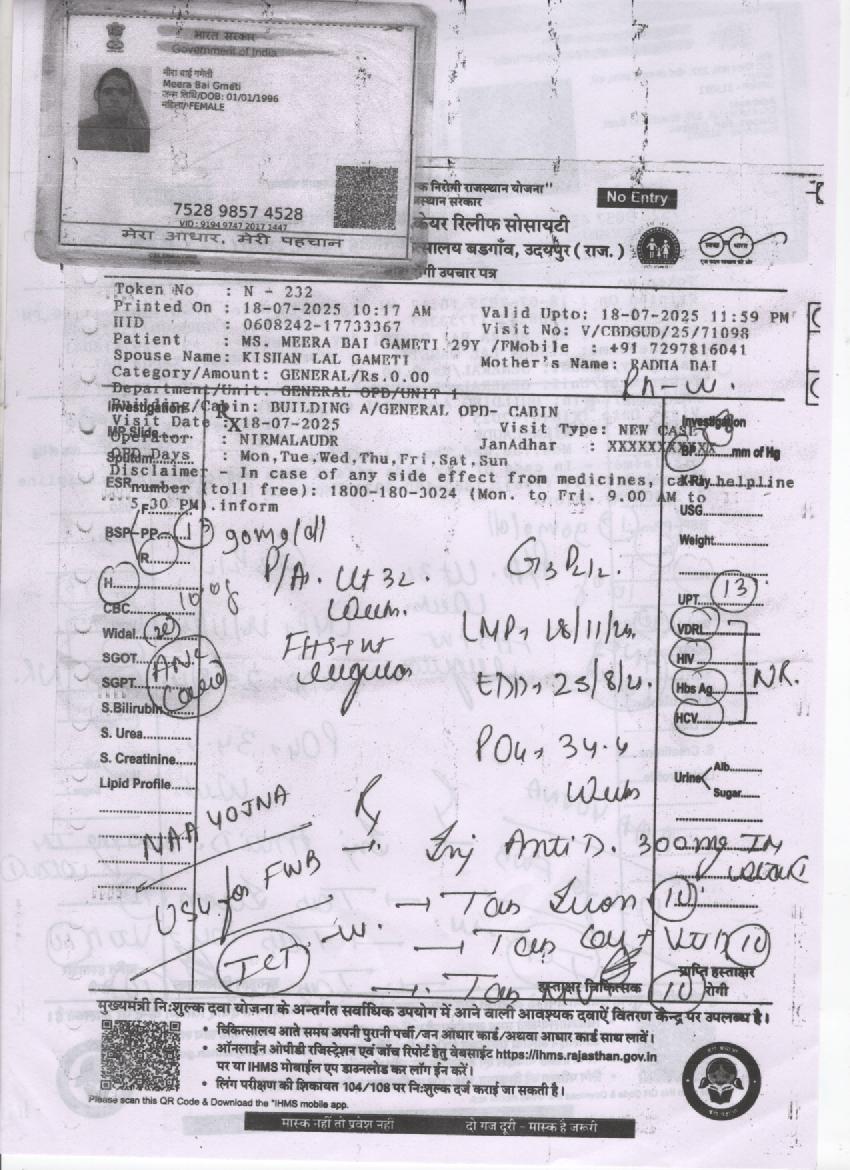 भारत सरकार
Government of India
मीरा बाई गमेती
Meera Bai Gmeti
जन्म तिथि/DOB: 01/01/1996
महिला/ FEMALE
7528 9857 4528
VID : 9194 9747 2017 1447
मेरा आधार, मेरी पहचान
निरोगी राजस्थान योजना"
No Entry
केयर रिलीफ सोसायटी
बडगाँव, उदयपुर ( राज. )
उपचार पत्र
Token No : N - 232
Printed On : 18-07-2025 10:17 AM Valid Upto: 18-07-2025 11:59 PM
HID : 0608242-17733367 Visit No: V/CBDGUD/25/71098
Patient : MS. MEERA BAI GAMETI 29Y /F Mobile : +91 7297816041
Spouse Name: KISHAN LAL GAMETI Mother's Name: RADHA BAI
Category/Amount: GENERAL/Rs.0.00
Department/Unit: GENERAL OPD/UNIT 1
Building/Cabin: BUILDING A/GENERAL OPD- CABIN
Visit Date : 18-07-2025 Visit Type: NEW CASE
Operator : NIRMALAUDR JanAadhar : XXXXXXXXXX
OPD Days : Mon,Tue,Wed,Thu,Fri,Sat,Sun
Disclaimer - In case of any side effect from medicines, call helpline
number (toll free): 1800-180-3024 (Mon. to Fri. 9.00 AM to
5.30 PM).inform
Investigations
MP Slide
Sputum
ESR
F
BSP PP
R
90mg/dl
H
CBC
Widal
SGOT
SGPT
S.Bilirubin
S. Urea
S. Creatinine
Lipid Profile
ANC
Card
P/A. Ut 32
Weeks
FHS+nt
G3 P2L2
LMP, 18/11/24
EDD, 25/8/2
POG, 34.4
Weeks
Investigation
BP mm of Hg
X-Ray
USG
Weight
UPT 13
VDRL
HIV
Hbs Ag NR.
HCV
Urine Alb
Sugar
NAA YOJNA
USG for FWB
ICT
→ Inj Anti D. 300mg IM
→ Tab Iron 10
→ Tab Cal + Vit D 10
→ Tab 10
हस्ताक्षर चिकित्सक
प्राप्ति हस्ताक्षर
रोगी
मुख्यमंत्री निःशुल्क दवा योजना के अन्तर्गत सर्वाधिक उपयोग में आने वाली आवश्यक दवाऐं वितरण केन्द्र पर उपलब्ध है।
• चिकित्सालय आते समय अपनी पुरानी पर्ची/जन आधार कार्ड/अथवा आधार कार्ड साथ लावें।
• ऑनलाईन ओपीडी रजिस्ट्रेशन एवं जाँच रिपोर्ट हेतु वेबसाईट https://ihms.rajasthan.gov.in
पर या IHMS मोबाईल एप डाउनलोड कर लॉग ईन करें।
• लिंग परीक्षण की शिकायत 104/108 पर निःशुल्क दर्ज कराई जा सकती है।
Please scan this QR Code & Download the "IHMS mobile app.
मास्क नहीं तो प्रवेश नही दो गज दूरी - मास्क है जरूरी